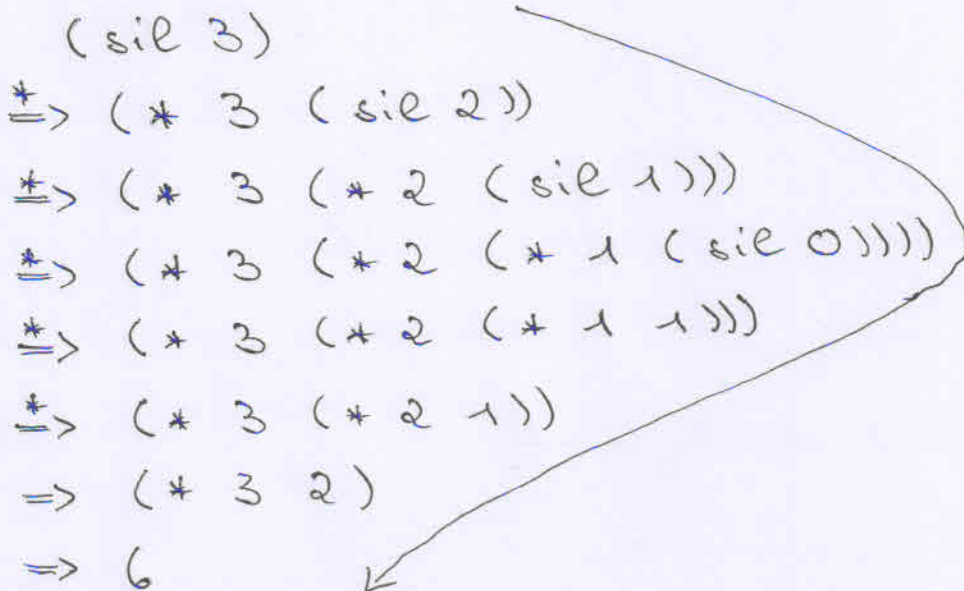 (sil 3)
*=> (* 3 (sil 2))
*=> (* 3 (* 2 (sil 1)))
*=> (* 3 (* 2 (* 1 (sil 0))))
*=> (* 3 (* 2 (* 1 1)))
*=> (* 3 (* 2 1))
=> (* 3 2)
=> 6